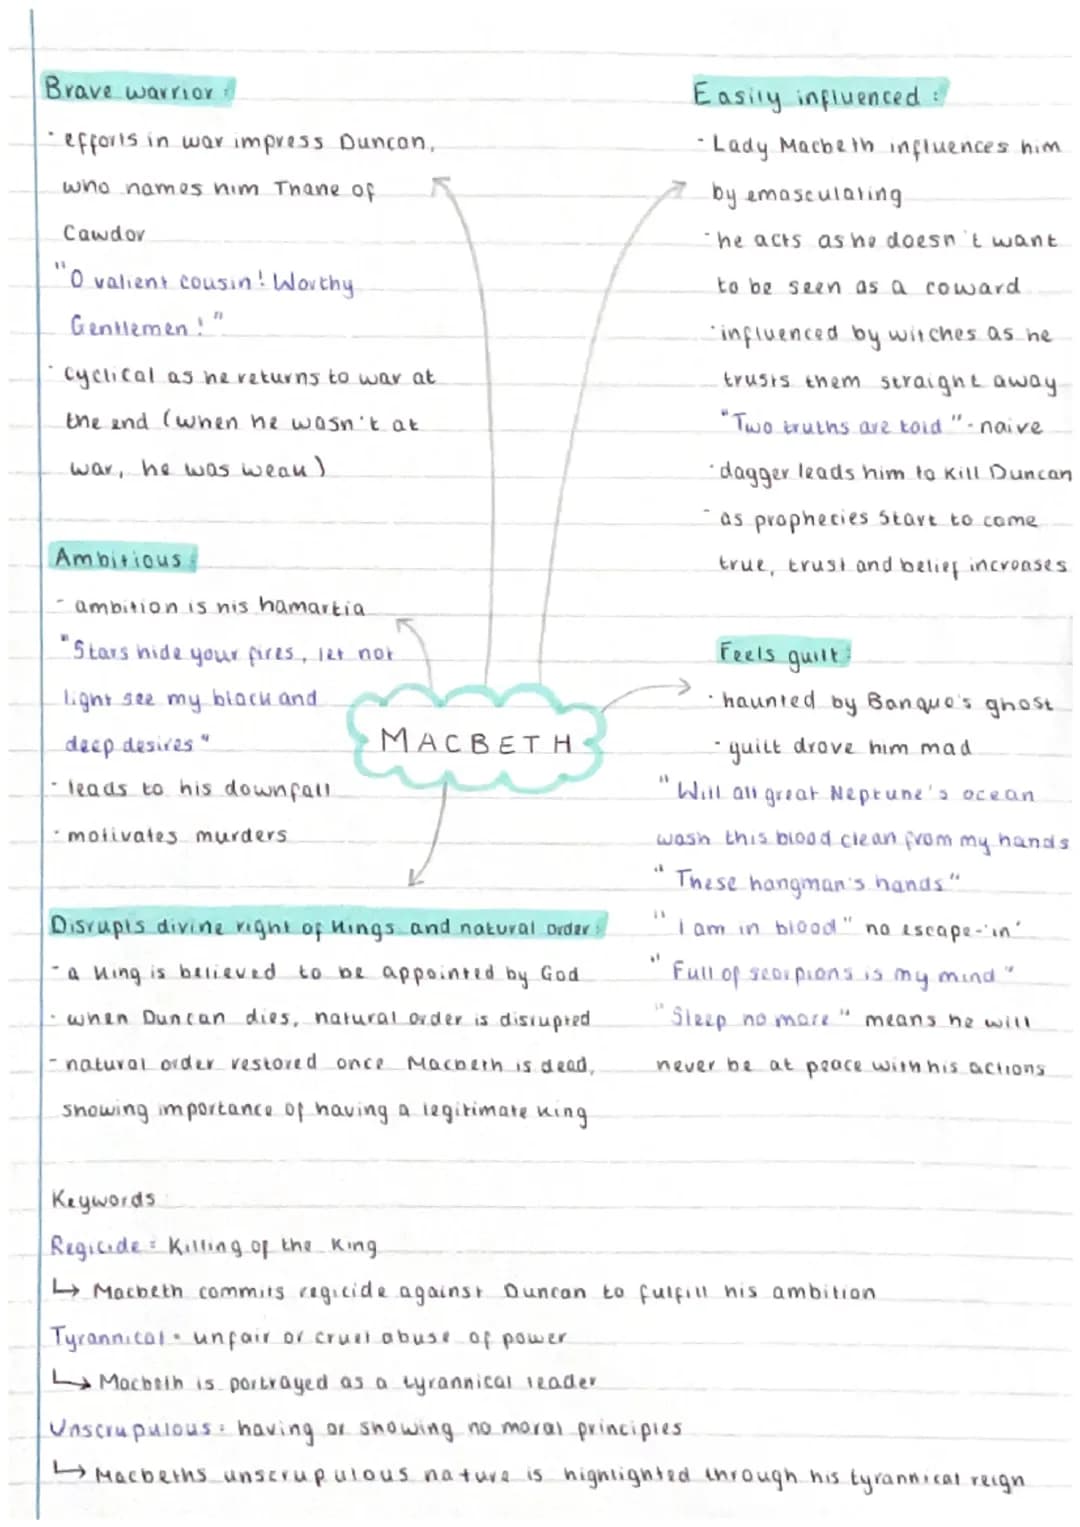 Brave warrior:
- efforts in war impress Duncan,
who names him Thane of
Cawdor
"O valient cousin! Worthy
Gentlemen!"
- cyclical as he returns to war at
the end (when he wasn't at
war, he was weak)
Ambitious:
- ambition is his hamartia
"Stars hide your fires, let not
light see my black and
deep desires"
- leads to his downfall
- motivates murders
Easily influenced:
- Lady Macbeth influences him
by emasculating
- he acts as he doesn't want
to be seen as a coward
- influenced by witches as he
trusts them straight away
"Two truths are told" - naive
- dagger leads him to kill Duncan
- as prophecies start to come
true, trust and belief increases
MACBETH
Feels guilt:
- haunted by Banquo's ghost
- guilt drove him mad
"Will all great Neptune's ocean
wash this blood clean from my hands
"These hangman's hands"
"I am in blood" no escape - 'in'
"Full of scorpions is my mind"
"Sleep no more" means he will
never be at peace with his actions
Disrupts divine right of kings and natural order:
- a king is believed to be appointed by God
- when Duncan dies, natural order is disrupted
- natural order restored once Macbeth is dead,
showing importance of having a legitimate king
Keywords
Regicide = Killing of the King
↳ Macbeth commits regicide against Duncan to fulfill his ambition
Tyrannical = unfair or cruel abuse of power
↳ Macbeth is portrayed as a tyrannical leader
Unscrupulous = having or showing no moral principles
↳ Macbeths unscrupulous nature is highlighted through his tyrannical reign